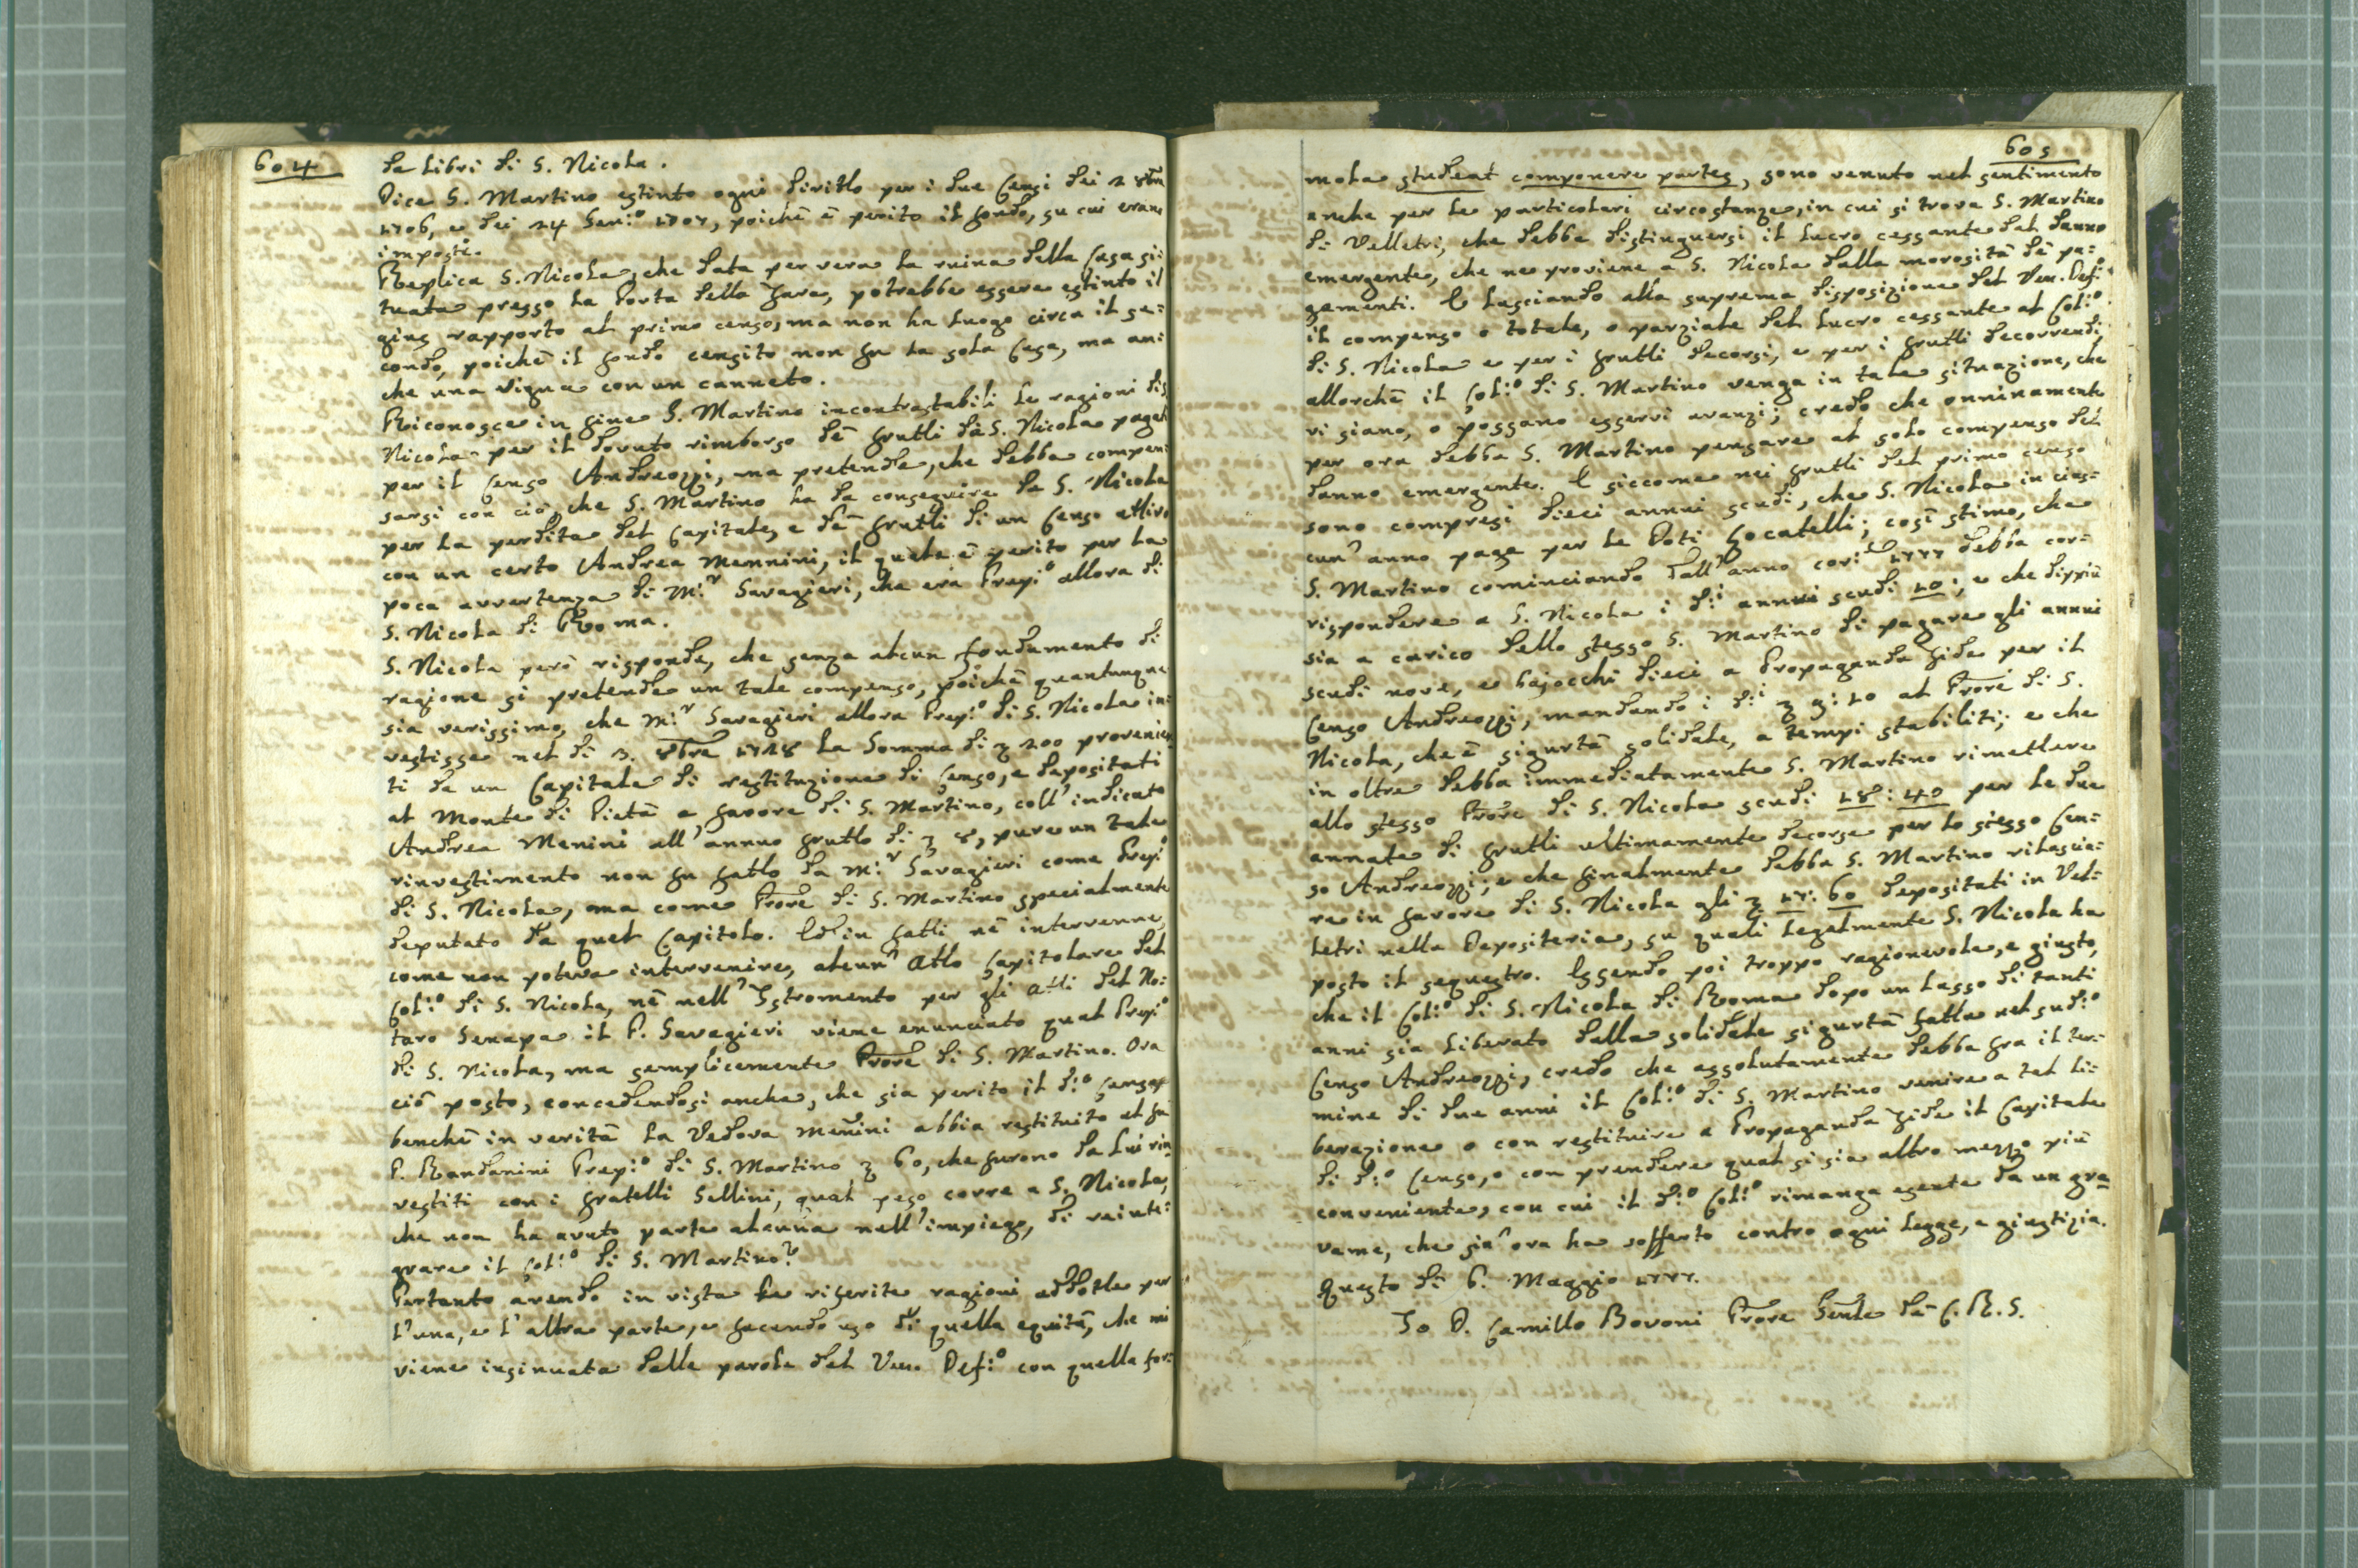 604
da Libri di S. Nicola.
Dice S. Martino estinto ogni diritto per i due Censi dei 2 8bre
1706, e dei 24 Gen:º 1707, poichè è perito il fondo, su cui erano
imposti.
Replica S. Nicola, che data per vera la ruina della Casa si:
tuata presso la Porta della fara, potrebbe essere estinto il
gius rapporto al primo censo, ma non ha luogo circa il se:
condo, poichè il fondo censito non fu la sola Casa, ma an:
che una Vigna con un canneto.
Riconosce in fine S. Martino incontrastabili le ragioni di S.
Nicola per il dovuto rimborso dè frutti da S. Nicola pagati
per il Censo Andreozzi, ma pretende, che debba compen:
sarsi con ciò, che S. Martino ha da conseguire da S. Nicola
per la perdita del Capitale, e dè frutti di un Censo attivo
con un certo Andrea Mennini, il quale è perito per la
poca avvertenza di M:r Savagieri, che era Prep:º allora di
S. Nicola di Roma.
S. Nicola però risponde, che senza alcun fondamento di
ragione si pretende un tale compenso, poichè quantunque
sia verissimo, che M:r Savagieri allora Prep:º di S. Nicola in:
vestisse nel dì 3. 8bre 1728 la Somma di ∇ 200 provenien
ti da un Capitale di restituzione di Censo, e depositati
al Monte di Pietà a favore di S. Martino, coll' indicato
Andrea Menini all' annuo frutto di ∇ 8, pure un tale
rinvestimento non fu fatto da M:r Savagieri come Prep:º
di S. Nicola, ma come Prore di S. Martino specialmente
deputato da quel Capitolo. Ed in fatti nè intervenne,
come non poteva intervenire, alcun' Atto Capitolare del
Col:º di S. Nicola, nè nell' Istromento per gli Atti del No:
taro Senapa il P. Savagieri viene enunciato qual Prep:º
di S. Nicola, ma semplicemente Prore di S. Martino. Ora
ciò posto, concedendosi anche, che sia perito il d:º Censo,
benchè in verità la Vedova Menini abbia restituito al fu
P. Randanini Prep:º di S. Martino ∇ 60, che furono da lui rin
vestiti con i fratelli Sellini, qual peso corre a S. Nicola,
che non ha avuto parte alcuna nell' impiego, di reinte:
grare il Col:º di S. Martino?
Pertanto avendo in vista le riferite ragioni addotte per
l' una, e l' altra parte, e facendo uso di quella equità, che mi
viene insinuata dalle parole del Ven. Def:º con quella for:
605
mola studeat componere partes, sono venuto nel sentimento
anche per le particolari circostanze, in cui si trova S. Martino
di Velletri, che debba distinguersi il lucro cessante dal danno
emergente, che ne proviene a S. Nicola dalla morosità dè pa:
gamenti. E lasciando alla suprema disposizione del Ven. Def:º
il compenso o totale, o parziale del lucro cessante al Col:º
di S. Nicola e per i frutti decorsi, e per i frutti decorrendi,
allorchè il Col:º di S. Martino venga in tale situazione, che
vi siano, o possano esservi avanzi; credo che onninamente
per ora debba S. Martino pensare al solo compenso del
danno emergente. E siccome nei frutti del primo censo
sono compresi dieci annui scudi, che S. Nicola in cias:
cun' anno paga per le Doti Locatelli; così stimo, che
S. Martino cominciando dall' anno cor:te 1777 debba cor:
rispondere a S. Nicola i d:i annui scudi 10; e che dippiù
sia a carico dello stesso S. Martino di pagare gli annui
scudi nove, e bajocchi dieci a Propaganda fide per il
Censo Andreozzi, mandando i d:i ∇ 9:10 al Prore di S.
Nicola, che è sigurtà solidale, a tempi stabiliti; e che
in oltre debba immediatamente S. Martino rimettere
allo stesso Prore di S. Nicola scudi 18:40 per le due
annate di frutti ultimamente decorse per lo stesso Cen:
so Andreozzi; e che finalmente debba S. Martino rilascia:
re in favore di S. Nicola gli ∇ 17:60 depositati in Vel:
letri nella Depositeria, su quali legalmente S. Nicola ha
posto il sequestro. Essendo poi troppo ragionevole, e giusto,
che il Col:º di S. Nicola di Roma dopo un lasso di tanti
anni sia liberato dalla solidale sigurtà fatta nel sud:º
Censo Andreozzi, credo che assolutamente debba fra il ter:
mine di due anni il Col:º di S. Martino venire a tal li:
berazione o con restituire a Propaganda fide il Capitale
di d:º Censo, o con prendere qual si sia altro mezzo più
conveniente, con cui il d:º Col:º rimanga esente da un gra
vame, che sin' ora ha sofferto contro ogni legge, e giustizia.
Questo dì 6. Maggio 1777.
Io D. Camillo Bovoni Prore Genle dè C. R. S.